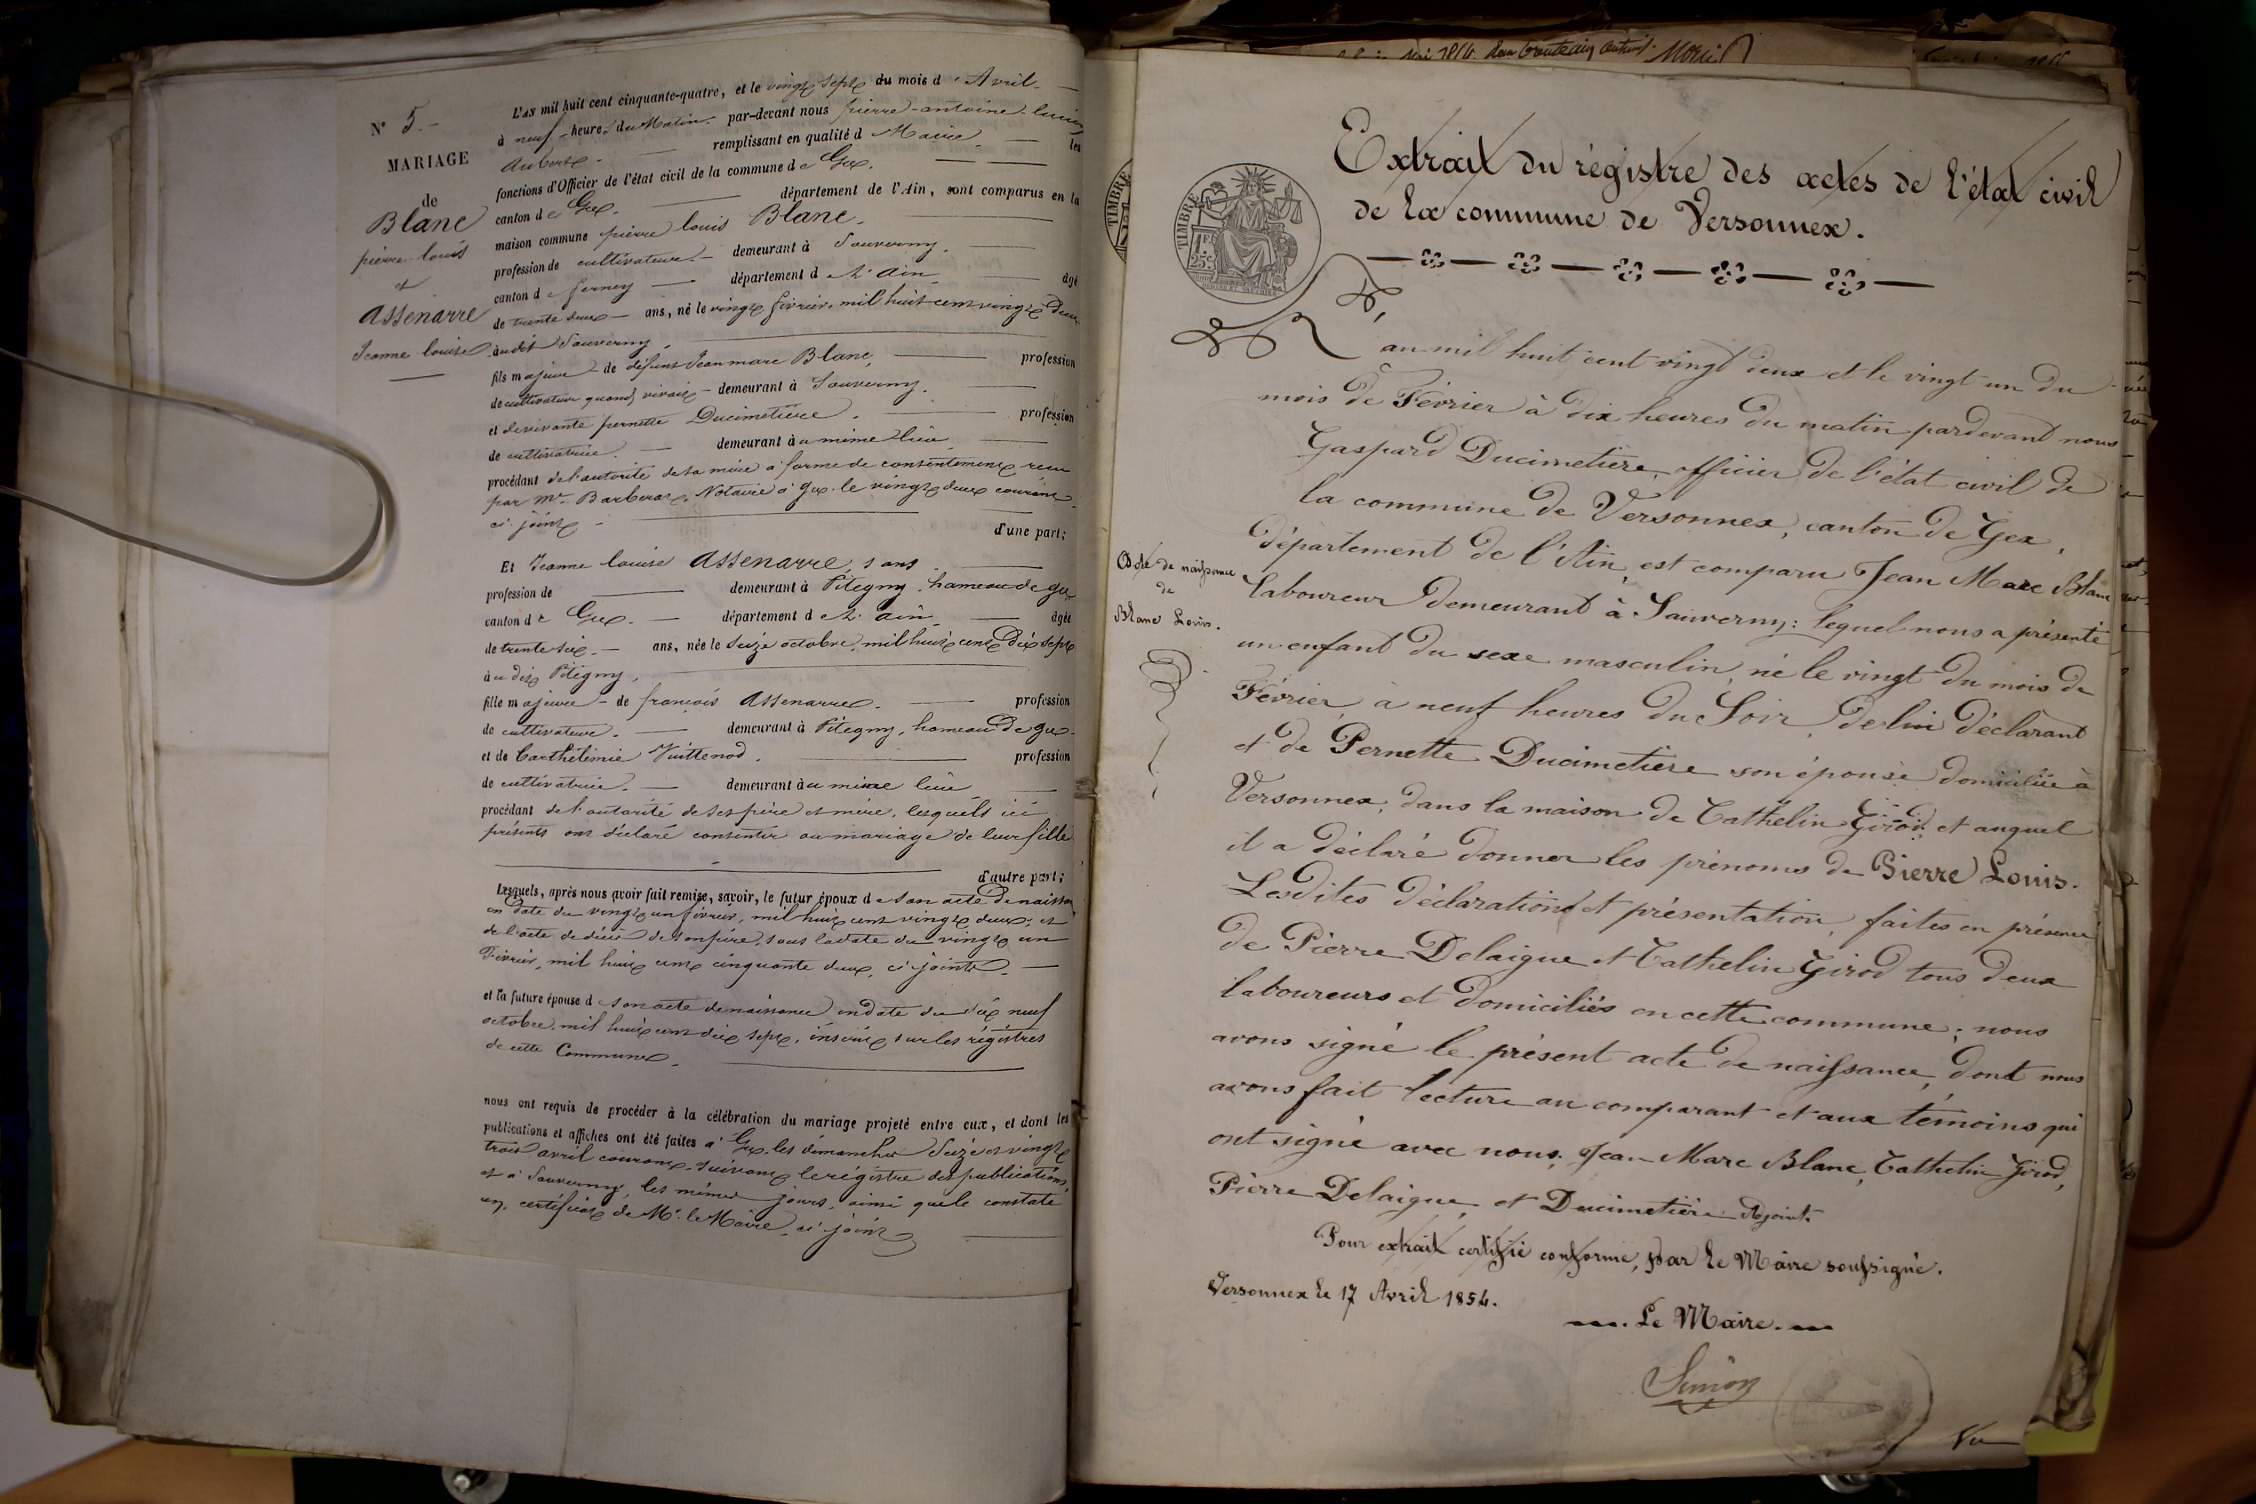 N° 5.
MARIAGE
de
Blanc
pierre louis
&
Assenarre
Jeanne louise
L'an mil huit cent cinquante-quatre, et le vingt sept du mois d'Avril.
à neuf heures du Matin. par-devant nous pierre-antoine-lucien
Aubert remplissant en qualité de Maire les
fonctions d'Officier de l'état civil de la commune de Gex.
canton de Gex. département de l'Ain, sont comparus en la
maison commune pierre louis Blanc.
profession de cultivateur demeurant à Sauverny.
canton de ferney département de l'ain âgé
de trente deux ans, né le vingt février mil huit cent vingt deux
audit Sauverny,
fils majeur de défunt Jean marc Blanc, profession
de cultivateur quand vivait demeurant à Sauverny.
et de vivante pernette Ducimetière. profession
de cultivatrice. demeurant au même lieu
procédant de l'autorité de sa mère à forme de consentement reçu
par Mr. Barberat, Notaire à Gex le vingt deux courant
ci-joint
d'une part;
Et Jeanne louise Assenarre, s ans
profession de demeurant à Pitegny, hameau de gex
canton de Gex. département de l'ain âgée
de trente six. ans, née le Seize octobre, mil huit cent dix sept
au dit Pitegny,
fille majeure de françois Assenarre. profession
de cultivateur. demeurant à Pitegny, hameau de gex
et de Carthélémie Vuittenod. profession
de cultivatrice. demeurant au même lieu
procédant de l'autorité de ses père et mère, lesquels ici
présents ont déclaré consentir au mariage de leur fille
d'autre part;
Lesquels, après nous avoir fait remise, savoir, le futur époux de son acte de naissance
en date du vingt un février, mil huit cent vingt deux, et
de l'acte de décès de son père, sous la date du vingt un
Février, mil huit cent cinquante deux, ci-joints.
et la future épouse de son acte de naissance en date du dix neuf
octobre mil huit cent dix sept, inscrit sur les régistres
de cette Commune.
nous ont requis de procéder à la célébration du mariage projeté entre eux, et dont les
publications et affiches ont été faites à Gex les dimanches Seize et vingt
trois avril courant, suivant le régistre des publications,
et à Sauverny, les mêmes jours, ainsi que le constate
un, certificat de Mr. le Maire, ci-joint
Extrait du régistre des actes de l'état civil
de la commune de Versonnex.
TIMBRE
1F.
25C.
L'an mil huit cent vingt deux et le vingt un du
mois de Février à dix heures du matin pardevant nous
Gaspard Ducimetière officier de l'état civil de
la commune de Versonnex, canton de Gex,
département de l'Ain, est comparu Jean Marc Blanc
Acte de naissance
de
Blanc Louis.
laboureur demeurant à Sauverny: lequel nous a présenté
un enfant du sexe masculin, né le vingt du mois de
Février à neuf heures du Soir, de lui déclarant
et de Pernette Ducimetière son épouse domiciliée à
Versonnex, dans la maison de Cathelin Girod, et auquel
il a déclaré donner les prénoms de Pierre Louis.
Lesdites déclaration et présentation, faites en présence
de Pierre Delaigue et Cathelin Girod tous deux
laboureurs et domiciliés en cette commune; nous
avons signé le présent acte de naissance, dont nous
avons fait lecture au comparant et aux témoins qui
ont signé avec nous. Jean Marc Blanc, Cathelin Girod,
Pierre Delaigue, et Ducimetière Adjoint.
Pour extrait certifié conforme, par le Maire soussigné.
Versonnex le 17 Avril 1854.
Le Maire.
Simon
Vu